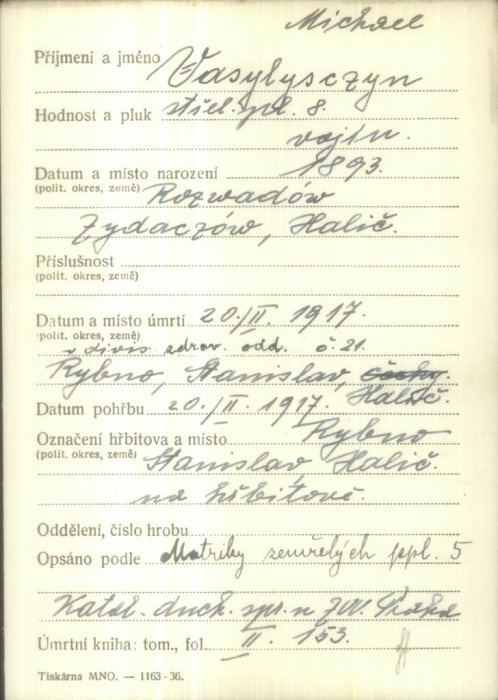 Michael
Příjmení a jméno Vasylysczyn
Hodnost a pluk střel. pl. 8.
vojín.
Datum a místo narození 1893.
(polit. okres, země) Rozwadów
Zydaczów, Halič.
Příslušnost
(polit. okres, země)
Datum a místo úmrtí 20./II. 1917.
(polit. okres, země)
v divis. zdrav. odd. č. 21.
Rybno, Stanislav, Čechy.
Halič.
Datum pohřbu 20./II. 1917.
Označení hřbitova a místo Rybno
(polit. okres, země) Stanislav, Halič.
na hřbitově.
Oddělení, číslo hrobu
Opsáno podle Matriky zemřelých ppl. 5
Katol. duch. spr. n ZVV. Praha
Úmrtní kniha: tom., fol. II. 153.
Tiskárna MNO. — 1163-36.